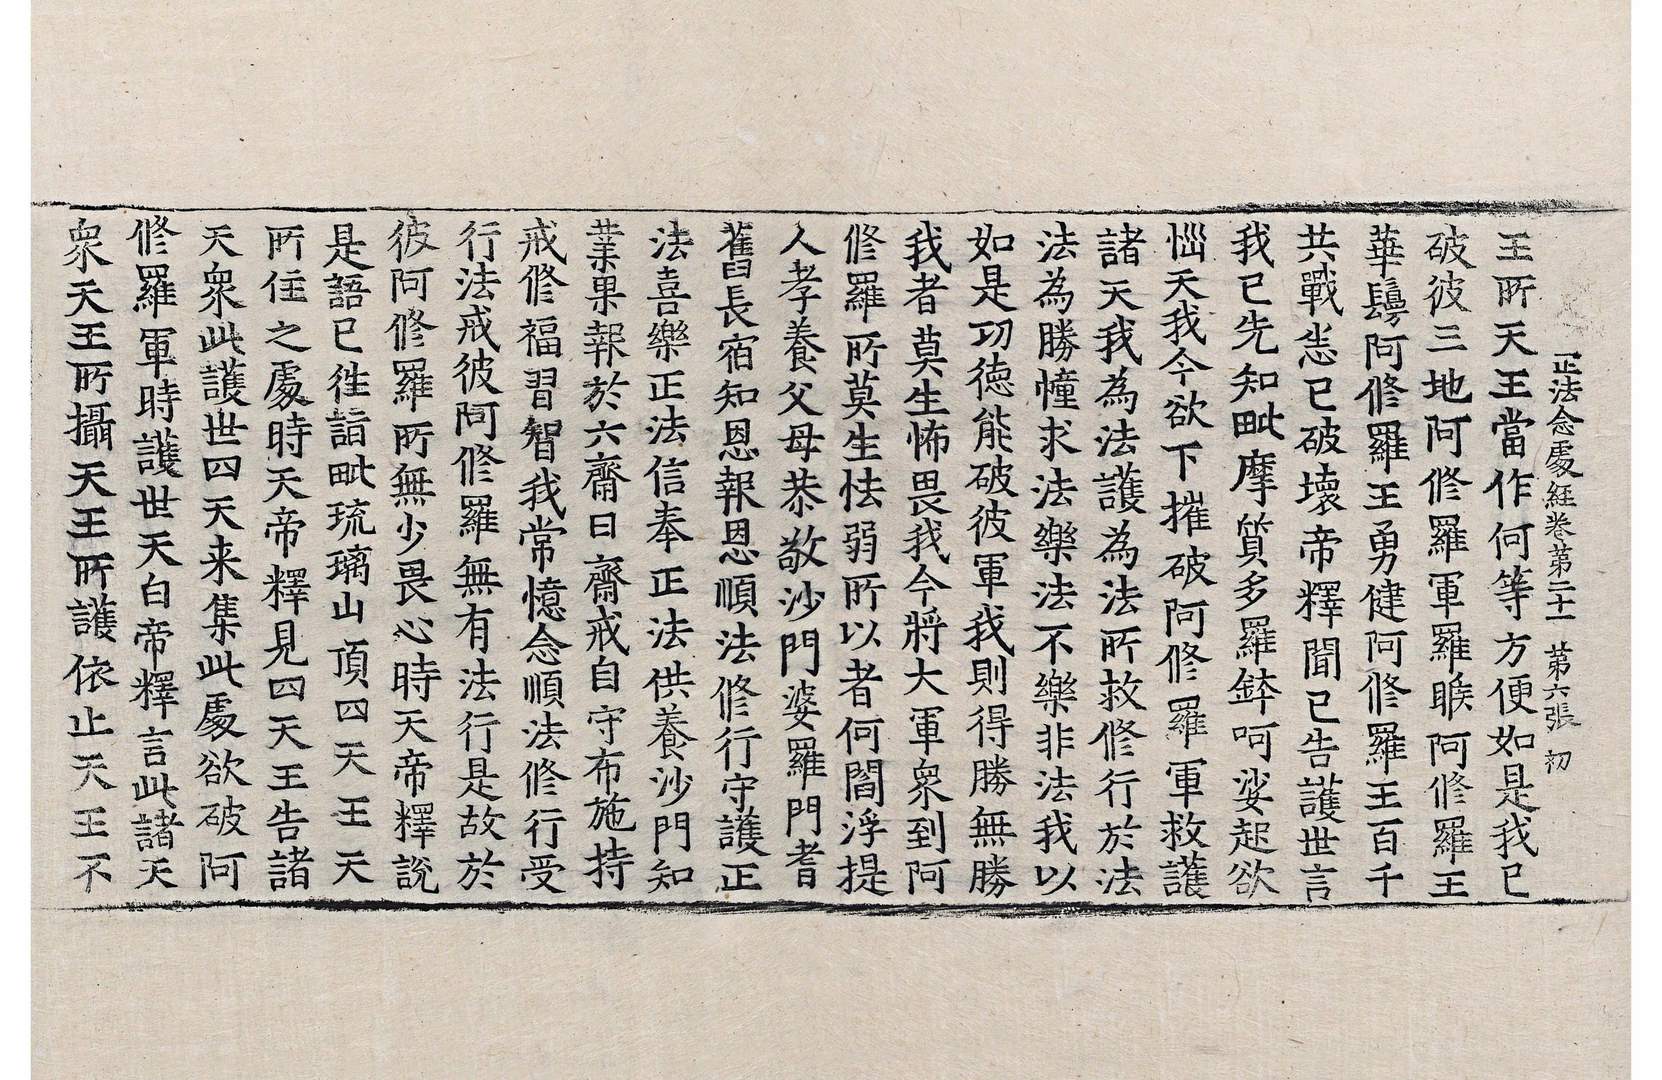 正法念處經卷第二十一 第六張 初
王所天王當作何等方便如是我已
破彼三地阿修羅軍羅睺阿修羅王
華鬘阿修羅王勇健阿修羅王百千
共戰悉已破壞帝釋聞已告護世言
我已先知毗摩質多羅鉢呵娑起欲
惱天我今欲下摧破阿修羅軍救護
諸天我為法護為法所救修行於法
法為勝幢求法樂法不樂非法我以
如是功德能破彼軍我則得勝無勝
我者莫生怖畏我今將大軍衆到阿
修羅所莫生怯弱所以者何閻浮提
人孝養父母恭敬沙門婆羅門耆
舊長宿知恩報恩順法修行守護正
法喜樂正法信奉正法供養沙門知
業果報於六齋日齋戒自守布施持
戒修福習智我常憶念順法修行受
行法戒彼阿修羅無有法行是故於
彼阿修羅所無少畏心時天帝釋說
是語已往詣毗琉璃山頂四天王天
所住之處時天帝釋見四天王告諸
天衆此護世四天来集此處欲破阿
修羅軍時護世天白帝釋言此諸天
衆天王所攝天王所護依止天王不